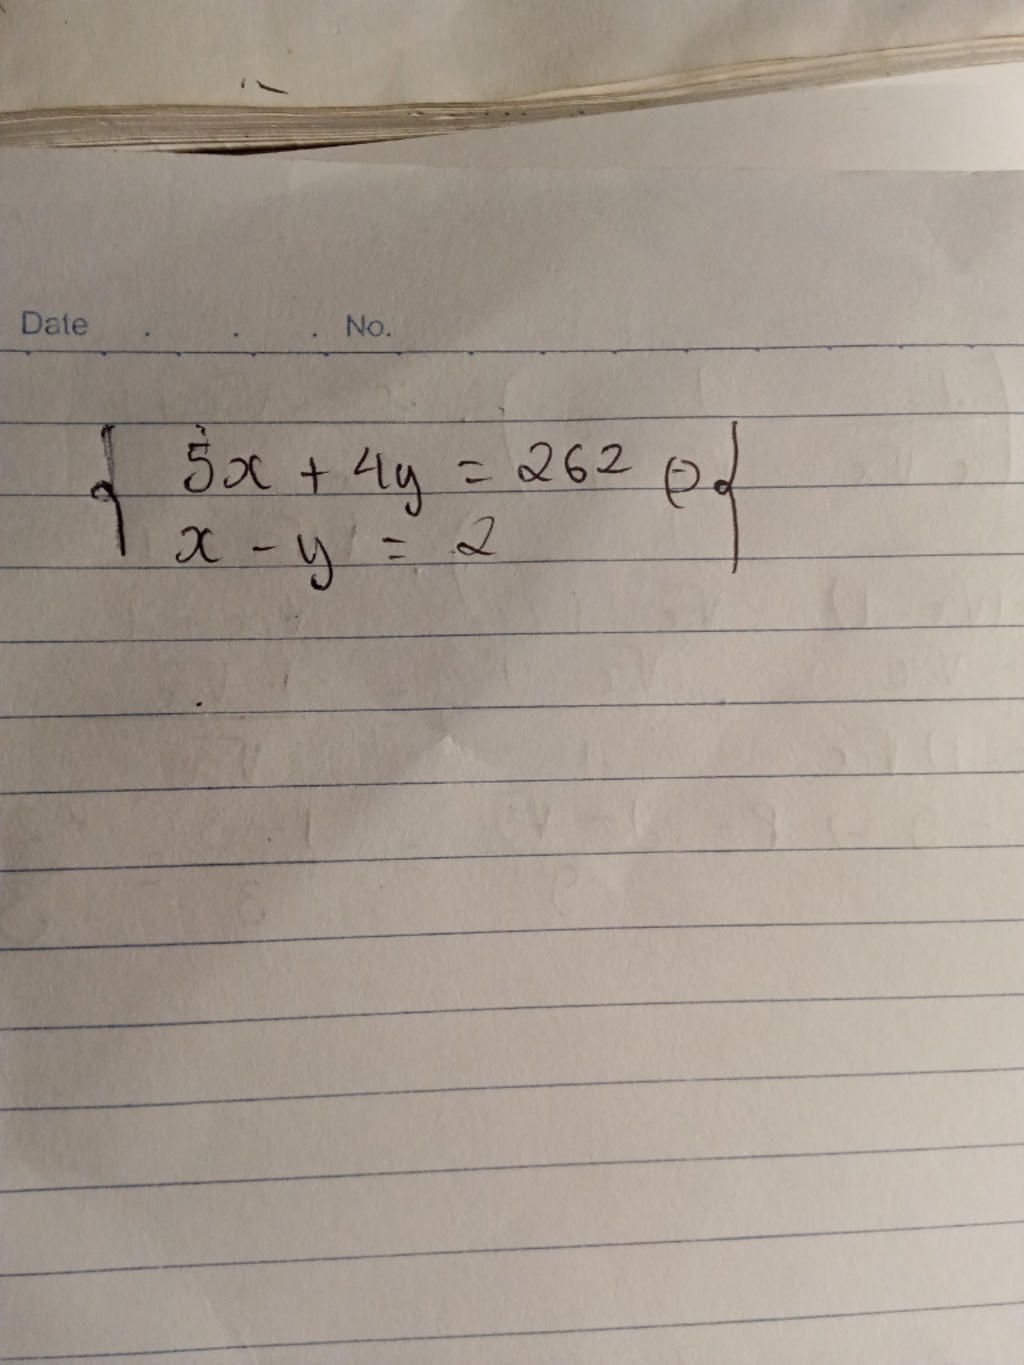 Date . . . No.
{ 5x + 4y = 262 ⇔ {
x - y = 2